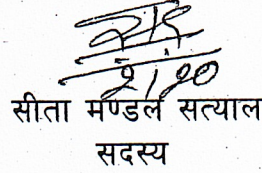 सीता मण्डल सत्याल
सदस्य